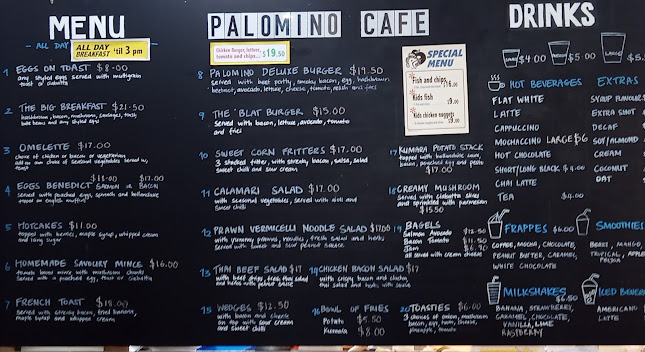 MENU
- ALL DAY -
ALL DAY
BREAKFAST
'til 3 pm
1 EGGS ON TOAST $8.00
any styled eggs served with multigrain
toast or ciabatta
2 THE BIG BREAKFAST $21.50
hashbrown, bacon, mushroom, sausages, toast,
bake beans and any styled eggs
3 OMELETTE $17.00
choice of chicken or bacon or vegetarian
toast
4 EGGS BENEDICT SALMON or BACON
$18.00 $17.00
served with poached eggs, spinach and hollandaise
sauce on english muffins
5 HOTCAKES $11.00
topped with berries, maple syrup, whipped cream
and icing sugar
6 HOMEMADE SAVOURY MINCE $16.00
served with a poached egg, toast or ciabatta
7 FRENCH TOAST $18.00
served with streaky bacon, fried banana,
maple syrup and whipped cream
PALOMINO CAFE
Chicken Burger, lettuce,
tomato and chips... $19.50
8 PALOMINO DELUXE BURGER $19.50
served with beef patty, streaky bacon, egg, hashbrown,
beetroot, avocado, lettuce, cheese, tomato, relish and fries
9 THE 'BLAT' BURGER $15.00
served with bacon, lettuce, avocado, tomato
and fries
10 SWEET CORN FRITTERS $17.00
3 stacked fritter, with streaky bacon, salsa, salad
sweet chili and sour cream
11 CALAMARI SALAD $17.00
with seasonal vegetables, served with aioli and
sweet chili
12 PRAWN VERMICELLI NOODLE SALAD $17.00
with yummy prawns, noodles, fresh salad and herbs
13 THAI BEEF SALAD $17
with beef strips, fresh thai salad
and herbs with peanut sauce
14 CHICKEN BACON SALAD $17
with crispy bacon and chicken
15 WEDGES $12.50
with bacon and cheese
on top with sour cream
and sweet chilli
16 BOWL OF FRIES
Potato $6.50
Kumara $8.00
SPECIAL
MENU
Fish and chips
$16.00
Kids fish
$9.00
Kids chicken nuggets
$9.00
17 KUMARA POTATO STACK
topped with hollandaise sauce,
bacon, poached egg and pesto
$17.00
18 CREAMY MUSHROOM
served with ciabatta slices
and sprinkled with parmesan
$15.50
19 BAGELS
Salmon Avocado $12.50
Bacon Tomato $11.50
Jam $6.50
all served with cream cheese
20 TOASTIES $6.00
3 choices of onion, mushroom
bacon, egg, ham, cheese,
pineapple, tomato
DRINKS
SMALL $4.00
$5.00
LARGE $5.
HOT BEVERAGES
FLAT WHITE
LATTE
CAPPUCCINO
MOCHACCINO LARGE $6
HOT CHOCOLATE
SHORT/LONG BLACK $4.00
CHAI LATTE
TEA $4.00
EXTRAS
SYRUP FLAVOURS
EXTRA SHOT
DECAF
SOY/ALMOND
CREAM
COCONUT
OAT
FRAPPES $6.00
COFFEE, MOCHA, CHOCOLATE,
PEANUT BUTTER, CARAMEL,
WHITE CHOCOLATE
SMOOTHIES
BERRY, MANGO,
TROPICAL, APPLE
FEIJOA
MILKSHAKES
$6.50
BANANA, STRAWBERRY,
CARAMEL, CHOCOLATE,
VANILLA, LIME
RASPBERRY
ICED BEVERA
AMERICANO
LATTE